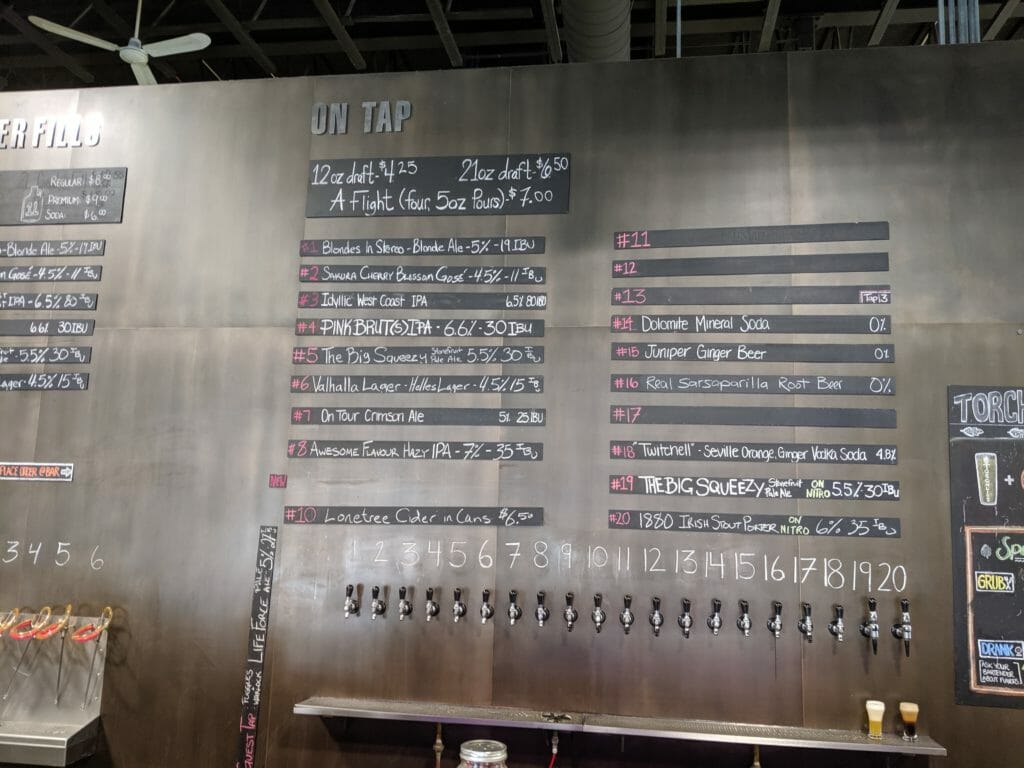 ER FILLS
REGULAR: $8.00
PREMIUM: $9.00
SODA: $6.00
-Blonde Ale - 5% - 19 IBU
Gosé - 4.5% - 11 IBU
IPA - 6.5% 80 IBU
6.6% 30 IBU
5.5% 30 IBU
Lager - 4.5% 15 IBU
PLACE ORDER @ BAR
3 4 5 6
ON TAP
12oz draft-$4.25 21oz draft-$6.50
A Flight (four, 5oz Pours) $7.00
#1 Blondes In Stereo - Blonde Ale - 5% - 19 IBU
#2 Sakura Cherry Blossom Gosé - 4.5% - 11 IBU
#3 Idyllic West Coast IPA 6.5% 80 IBU
#4 PINK BRUT(S) IPA - 6.6% - 30 IBU
#5 The Big Squeezy Stonefruit Pale Ale 5.5% 30 IBU
#6 Valhalla Lager - Helles Lager - 4.5% 15 IBU
#7 On Tour Crimson Ale 5% 25 IBU
#8 Awesome Flavour Hazy IPA - 7% - 35 IBU
NEW
#10 Lonetree Cider in Cans $6.50
#11
#12
#13 Tap 13
#14 Dolomite Mineral Soda 0%
#15 Juniper Ginger Beer 0%
#16 Real Sarsaparilla Root Beer 0%
#17
#18 "Twitchell" - Seville Orange, Ginger Vodka Soda 4.8%
#19 THE BIG SQUEEZY Stonefruit Pale Ale ON NITRO 5.5% 30 IBU
#20 1880 Irish Stout Porter ON NITRO 6% 35 IBU
1 2 3 4 5 6 7 8 9 10 11 12 13 14 15 16 17 18 19 20
LIFE FORCE PALE ALE
TORCH
GRUB
DRANK
ASK YOUR
BARTENDER
ABOUT FLAVORS